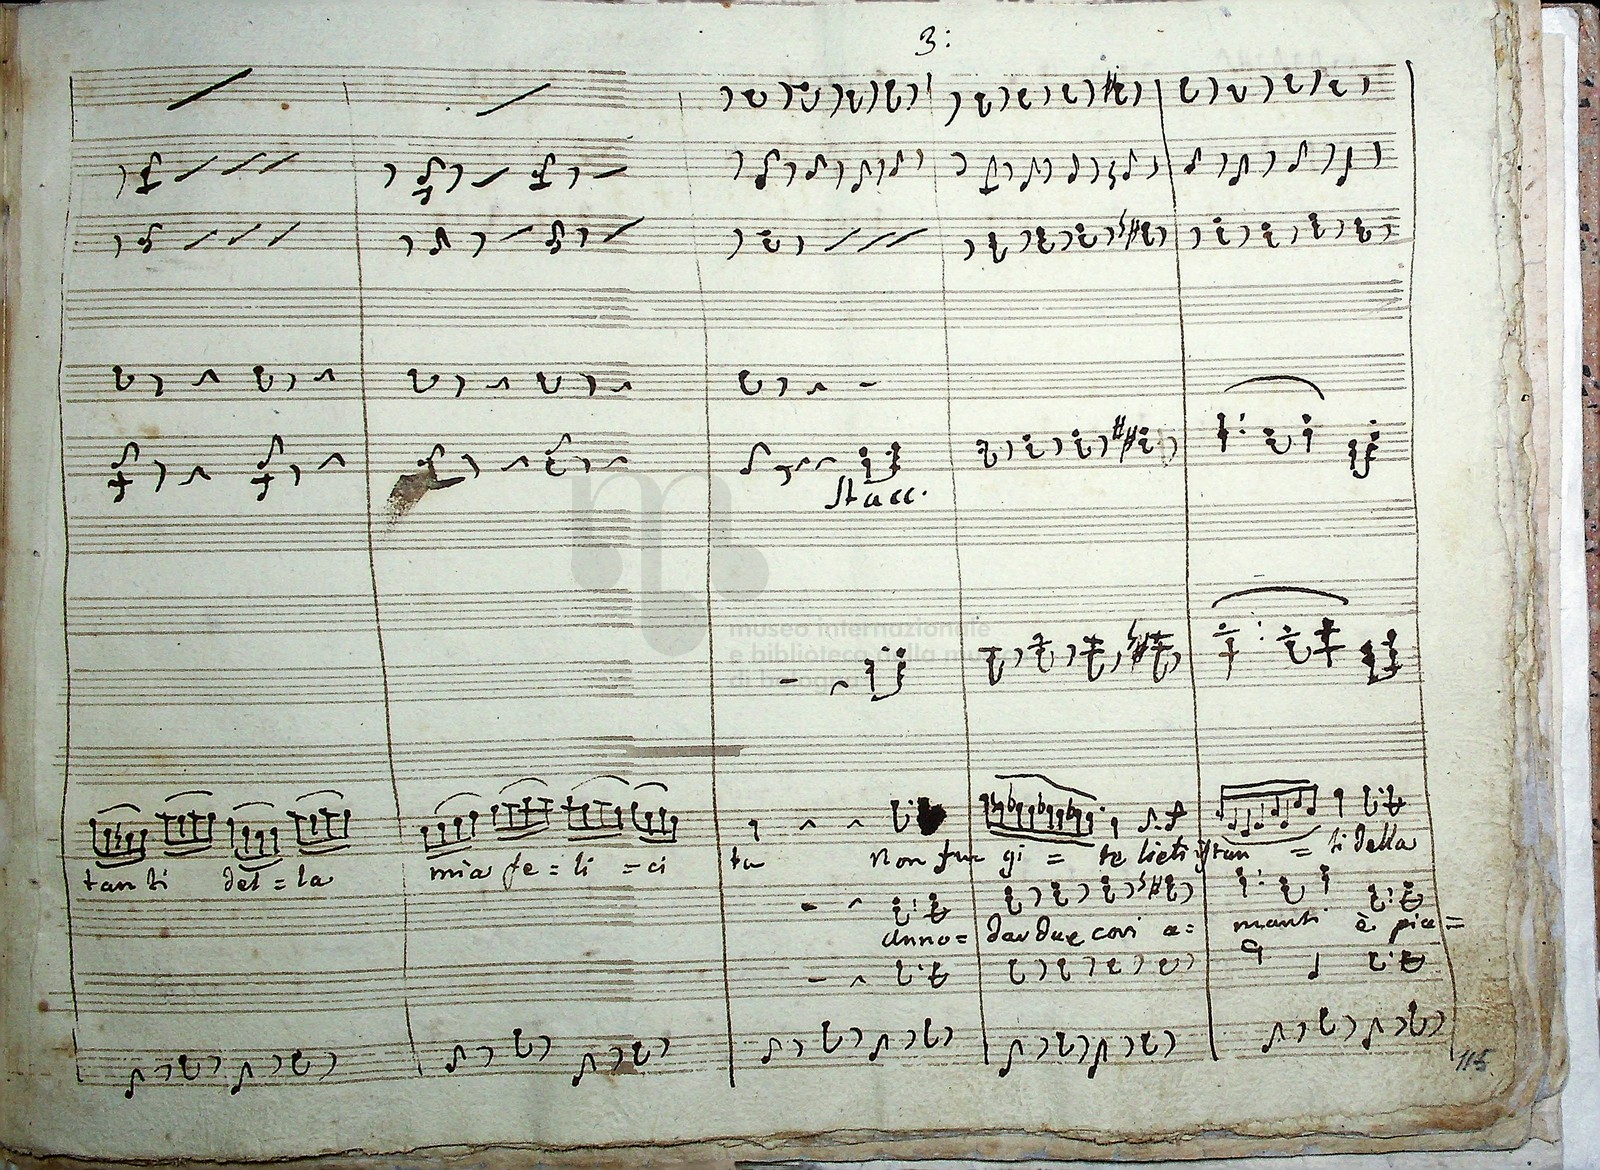 3:
Stacc.
museo internazionale
e biblioteca della musica
di bologna
tanti del = la mia fe = li = ci ta Non fug gi = te lieti istan = ti della
Anno = dar due cori a = manti è pia =
115